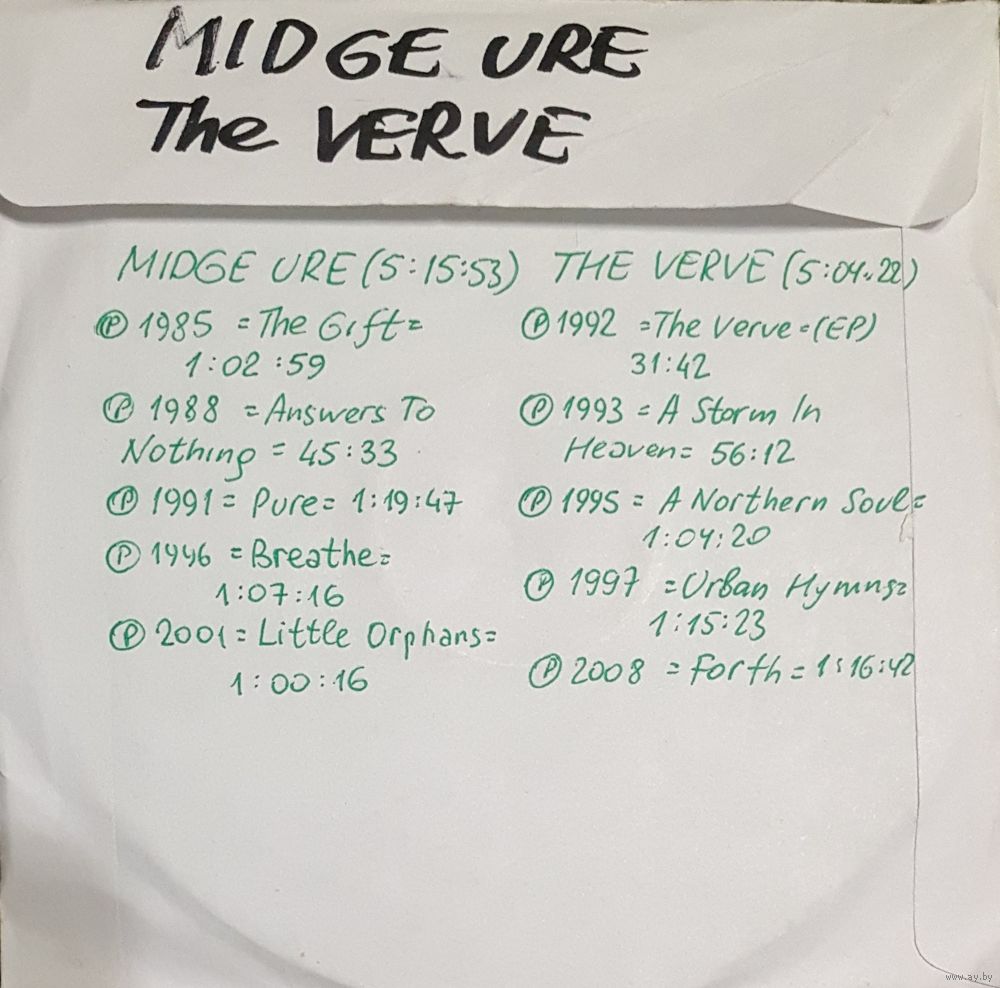 MIDGE URE
The VERVE
MIDGE URE (5:15:53)
Ⓟ 1985 =The Gift=
1:02:59
Ⓟ 1988 =Answers To
Nothing = 45:33
Ⓟ 1991 = Pure= 1:19:47
Ⓟ 1996 =Breathe=
1:07:16
Ⓟ 2001 = Little Orphans=
1:00:16
THE VERVE (5:04:22)
Ⓟ 1992 =The Verve=(EP)
31:42
Ⓟ 1993 = A Storm In
Heaven= 56:12
Ⓟ 1995 = A Northern Soul=
1:04:20
Ⓟ 1997 =Urban Hymns=
1:15:23
Ⓟ 2008 =Forth= 1:16:42
www.ay.by